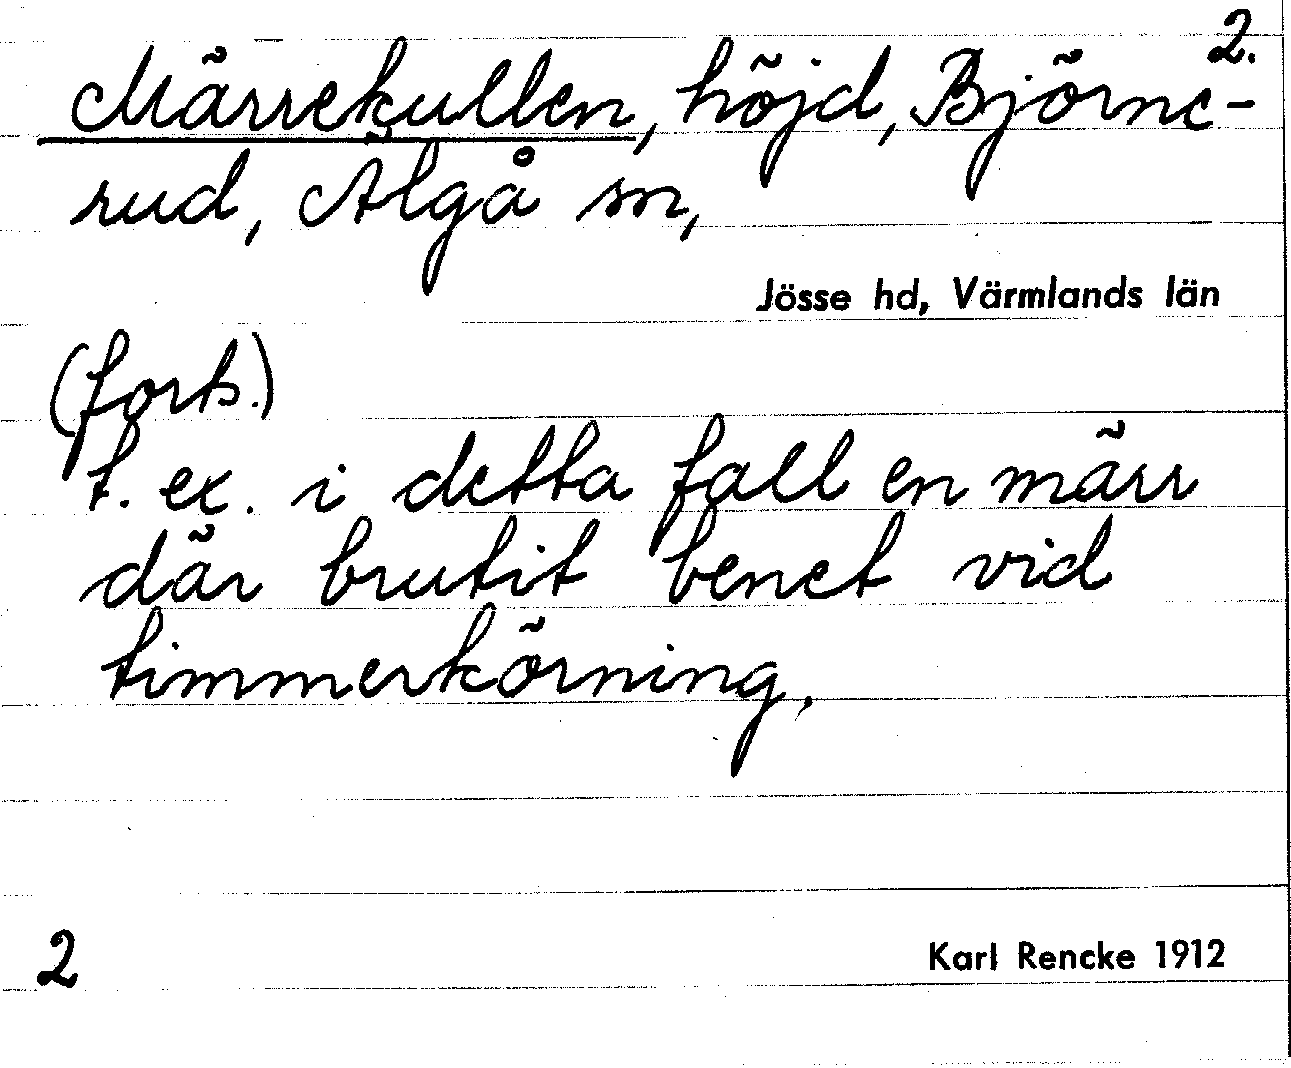 2.
Märrekullen, höjd, Björne-
rud, Älgå sn,
Jösse hd, Värmlands län
(forts.)
t. ex. i detta fall en märr
där brutit benet vid
timmerkörning.
2
Karl Rencke 1912